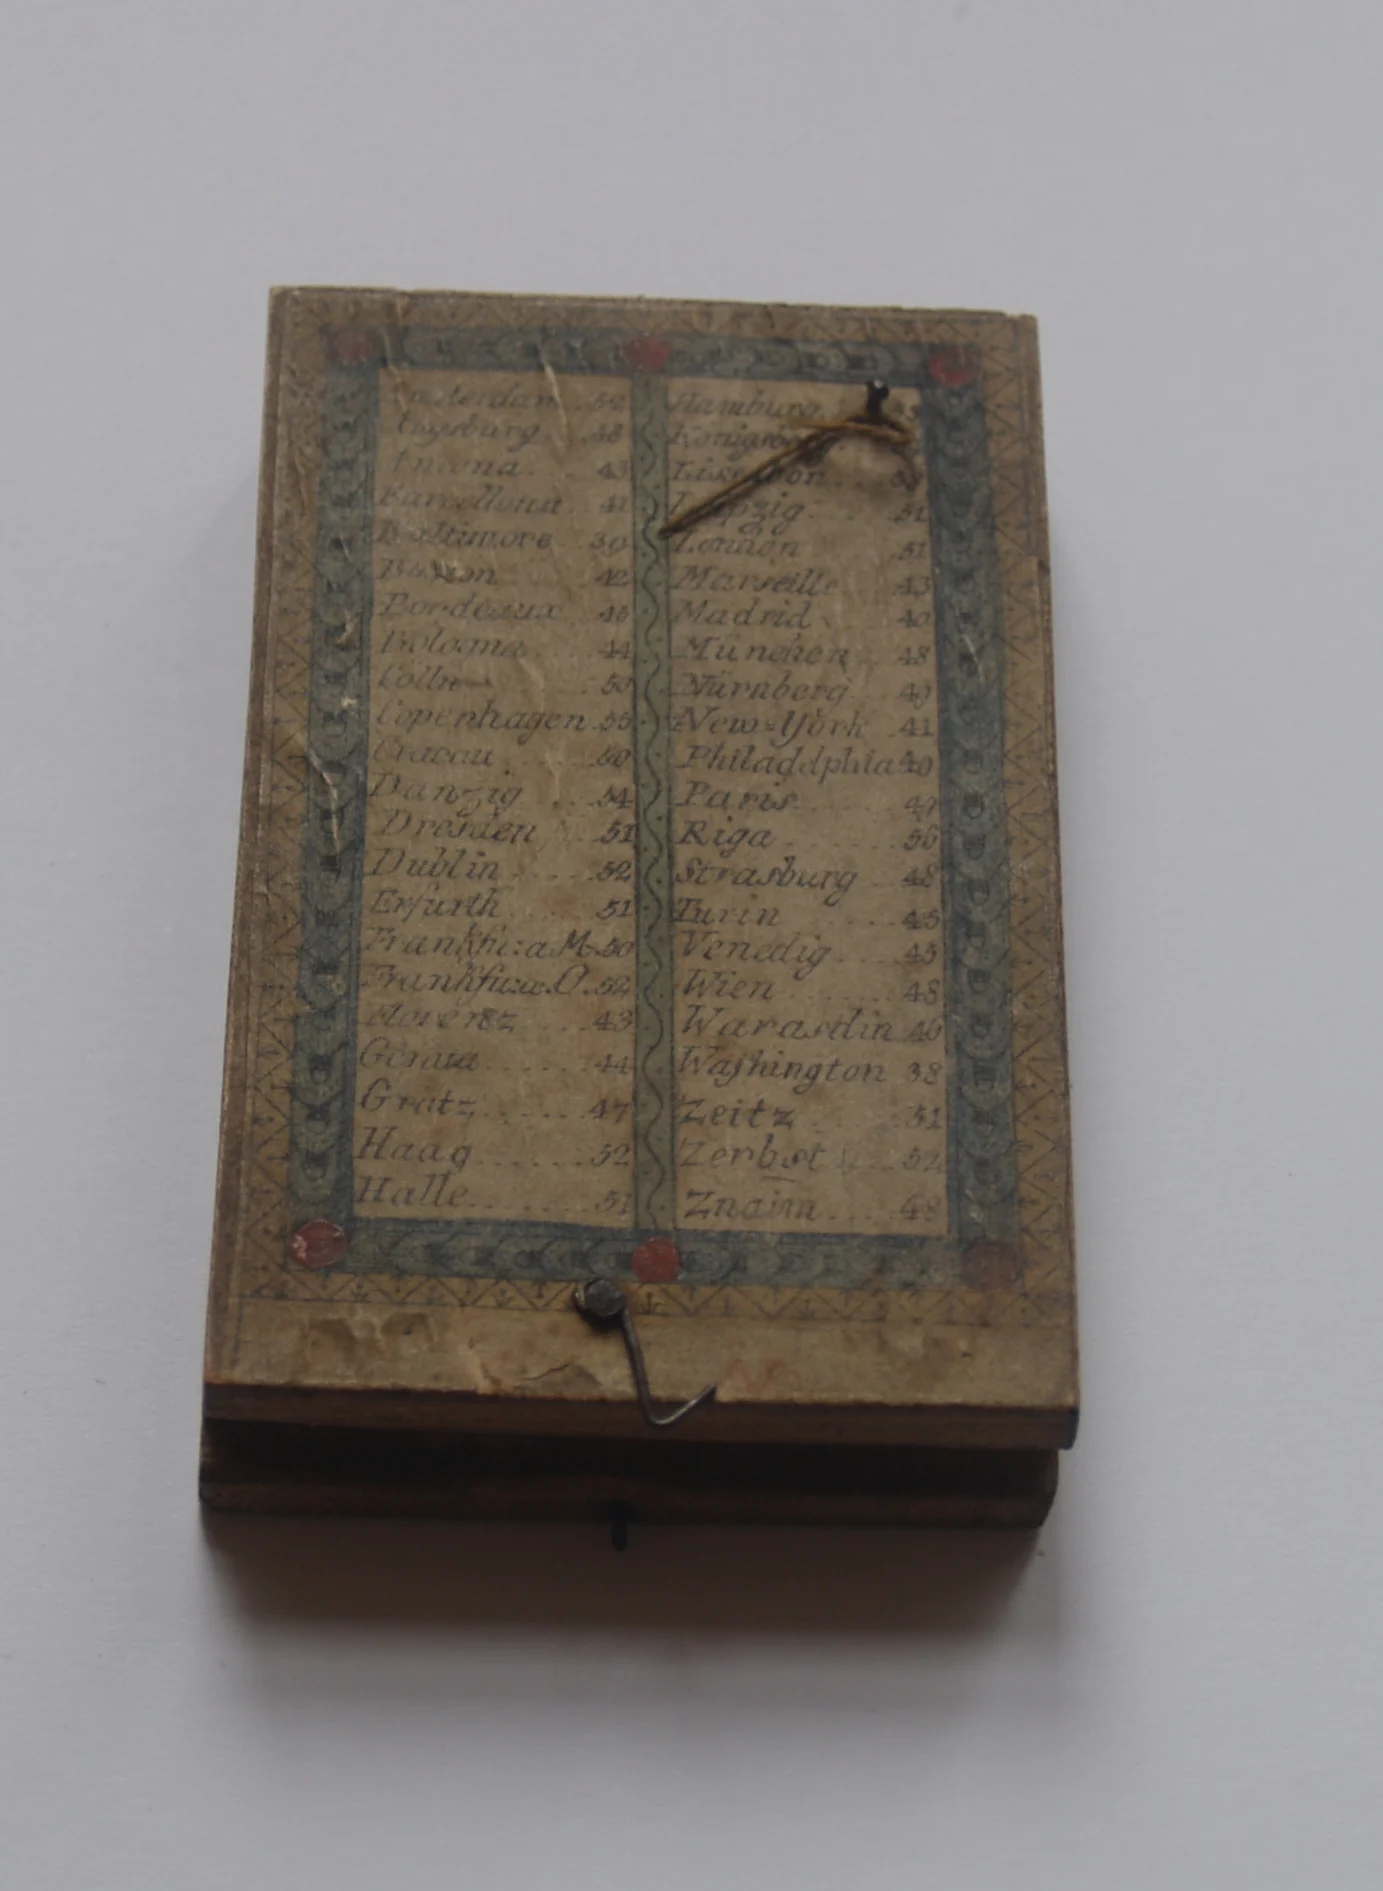 Amsterdam 52
Augsburg 48
Ancona 43
Barcellona 41
Baltimore 39
Boston 42
Bordeaux 45
Bologna 44
Cölln 50
Copenhagen 55
Cracau 50
Danzig 54
Dresden 51
Dublin 52
Erfurth 51
Frankfu: a M. 50
Frankfu: a. O. 52
Florenz 43
Genua 44
Gratz 47
Haag 52
Halle 51
Hamburg
Königsberg
Lissabon
Leipzig 51
London 51
Marseille 43
Madrid 40
München 48
Nürnberg 49
New=York 41
Philadelphia 40
Paris 49
Riga 56
Strasburg 48
Turin 45
Venedig 45
Wien 48
Warasdin 46
Washington 38
Zeitz 51
Zerbst 52
Znaim 48